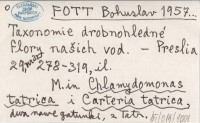 FOTT Bohuslav 1957...
Taxonomie drobnohledné
flory našich vod. — Preslia
29, 278-319, il.
M.in Chlamydomonas
tatrica i Carteria tatrica,
dwa nowe gatunki z Tatr.